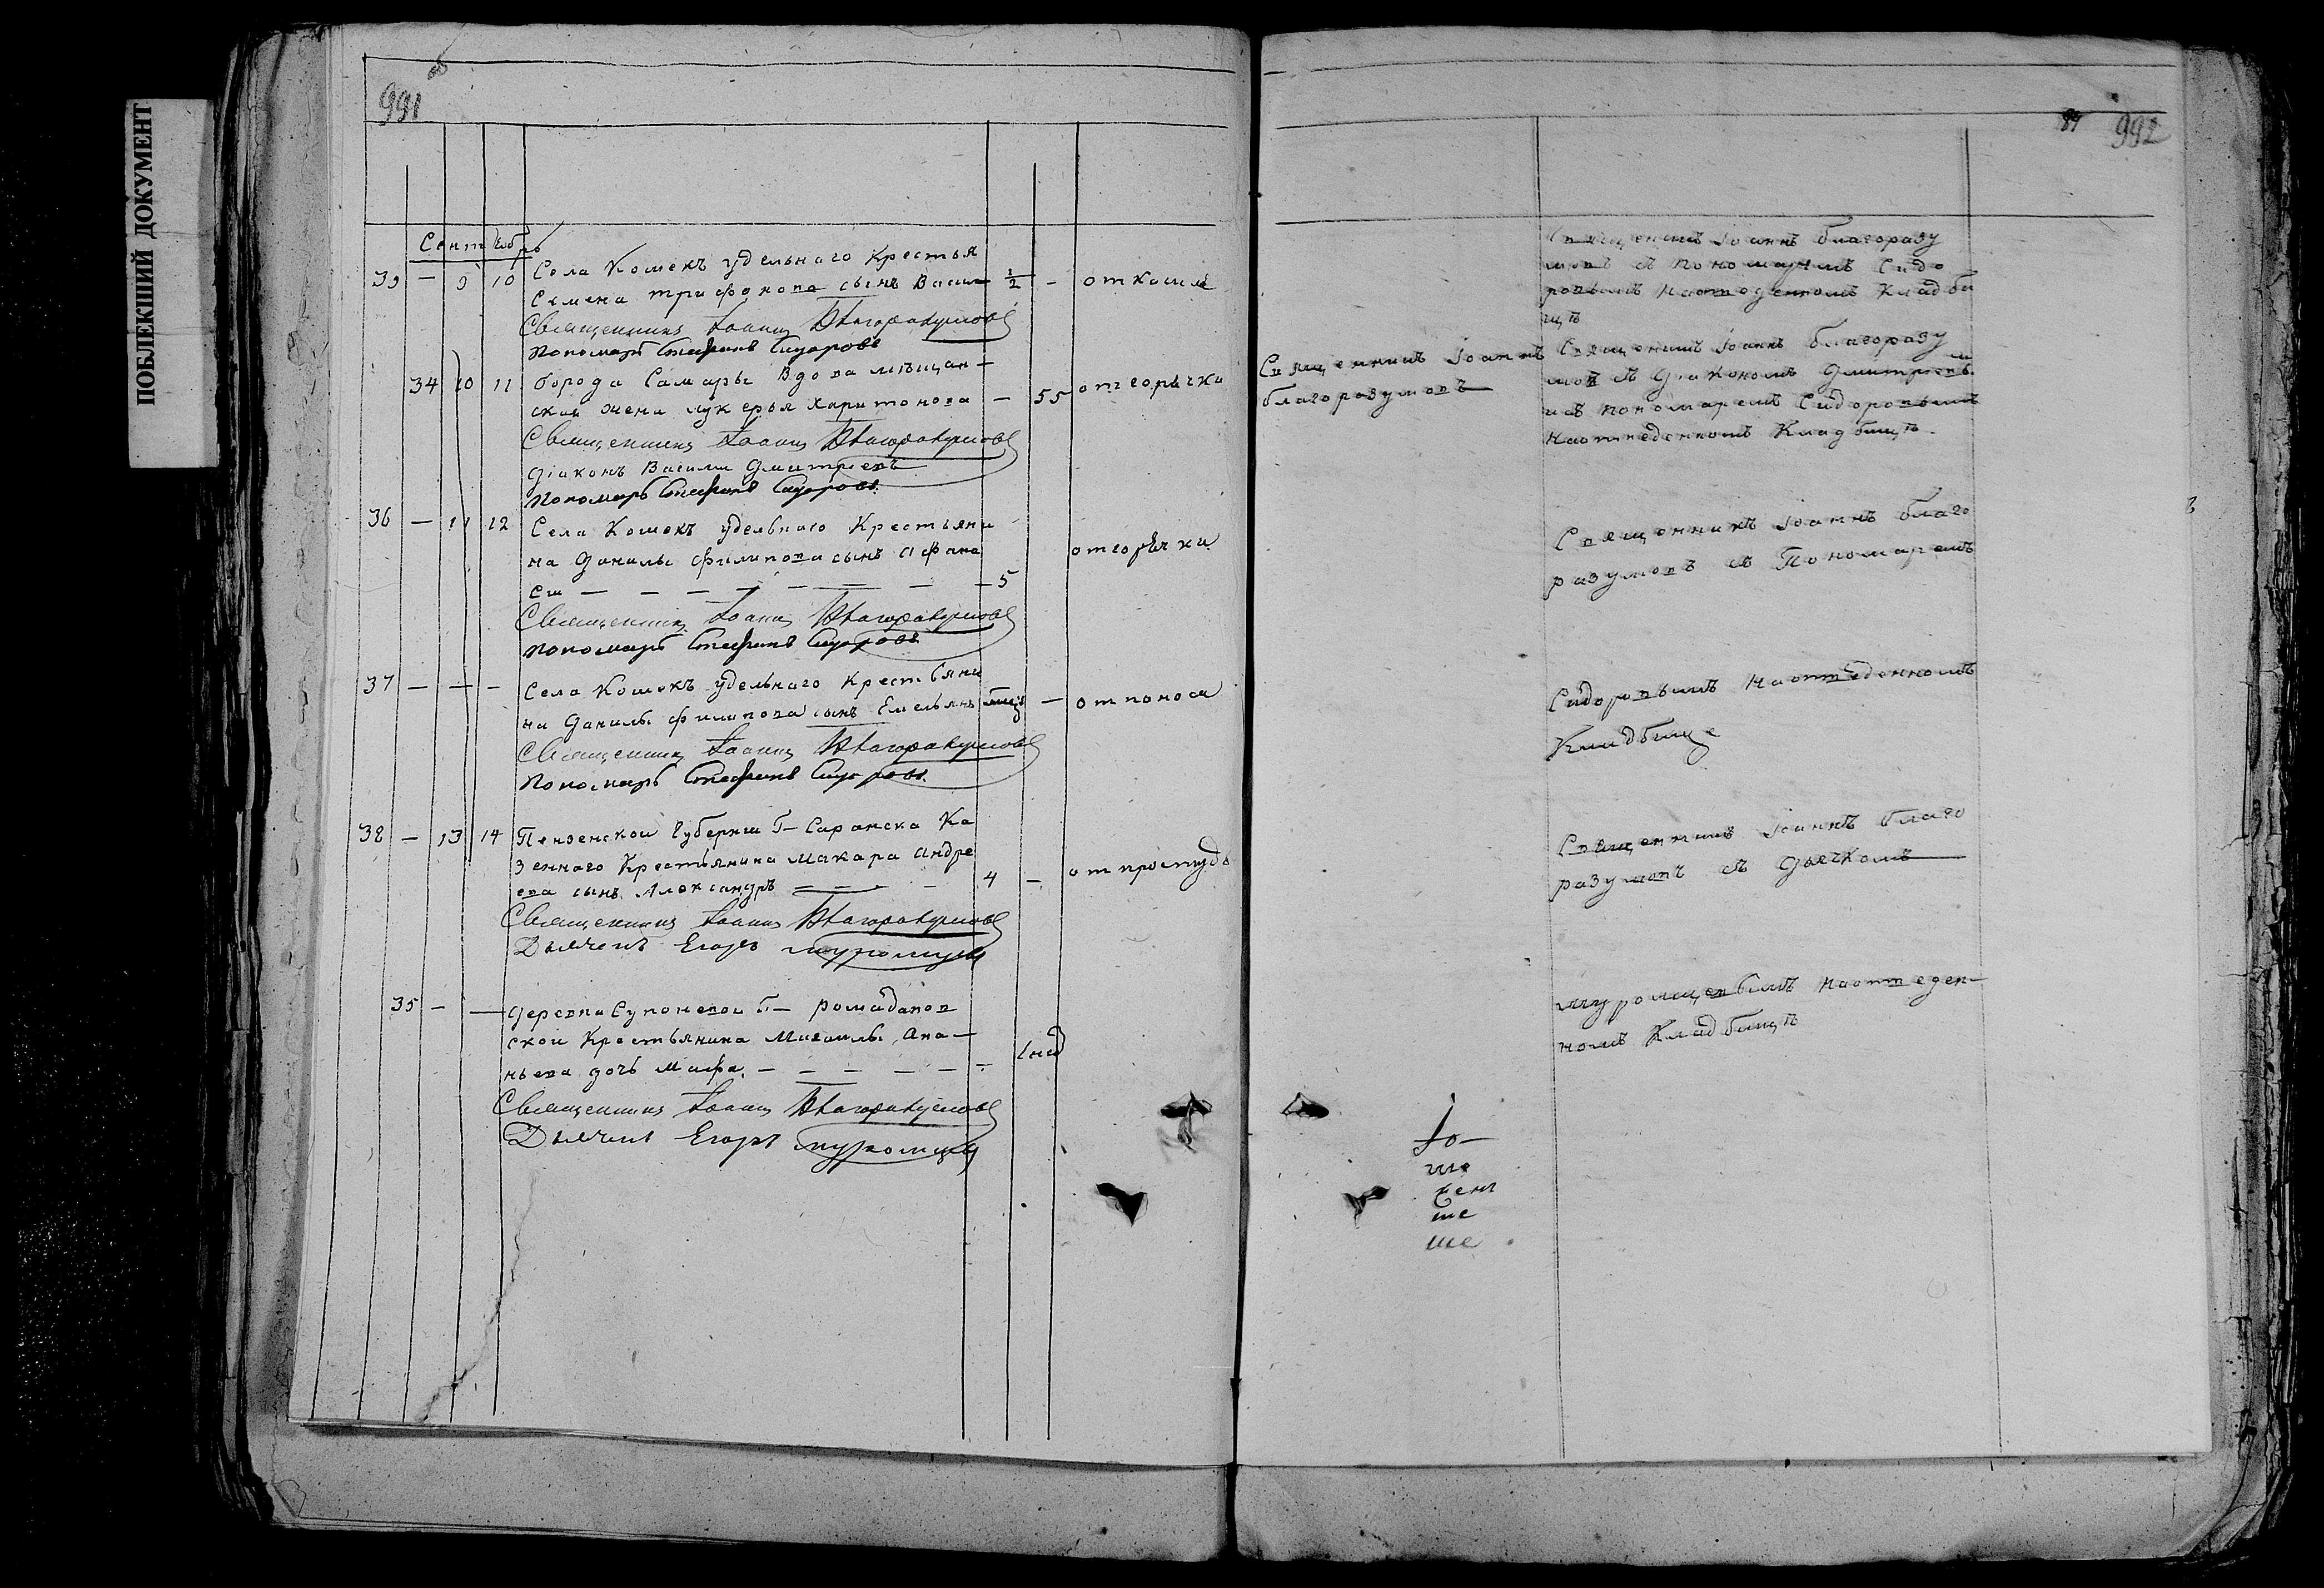 ПОБЛЕКШИЙ ДОКУМЕНТ
991
Сентябрь
39 — 9 10 Села Кошекъ удельнаго Крестья
Семена трифонова сынъ Васили 1/2 — от кашля
Священникъ Іоаннъ Благоразумовъ
Пономарь Стефанъ Сидоровъ
34 10 11 Города Самары Вдова мѣщан—
ской жена лукерья Харитонова — 55 от горячки
Священникъ Іоаннъ Благоразумовъ
Діаконъ Васили Дмитріевъ
Пономарь Стефанъ Сидоровъ
36 — 11 12 Села Кошекъ удельнаго Крестьяни
на Данилы филипова сынъ Афана
си — — — — — — — 5 от горячки
Священникъ Іоаннъ Благоразумовъ
Пономарь Стефанъ Сидоровъ
37 — — — Села Кошекъ удельнаго Крестьяни
на Данилы филипова сынъ Емельянъ — от поноса
Священникъ Іоаннъ Благоразумовъ
Пономарь Стефанъ Сидоровъ
38 — 13 14 Пензенской Губернии Г— Саранска Ка
зеннаго Крестьянина Макара Андре
ева сынъ Александръ — — — — 4 — от простуды
Священникъ Іоаннъ Благоразумовъ
Дьячекъ Егоръ муромцевъ
35 — — Деревни Супоневой Г— ромаданов
ской Крестьянина Михаилы Ана—
ньева дочь Марфа — — — — — —
Священникъ Іоаннъ Благоразумовъ
Дьячекъ Егоръ муромцевъ
84 992
Священникъ Іоаннъ благоразу
мовъ съ пономаремъ Сидо
ровымъ на отведенномъ Кладби
щѣ
Священникъ Іоаннъ
благоразумовъ
Священникъ Іоаннъ благоразу
мовъ съ діакономъ Дмитріевым
и съ пономаремъ Сидоровымъ
На отведенномъ Кладбищѣ
Священникъ Іоаннъ благо
разумовъ съ Пономаремъ
Сидоровымъ На отведенномъ
Кладбище
Священникъ Іоаннъ благо
разумовъ съ Дьячкомъ
муромцевымъ на отведен—
номъ Кладбищѣ